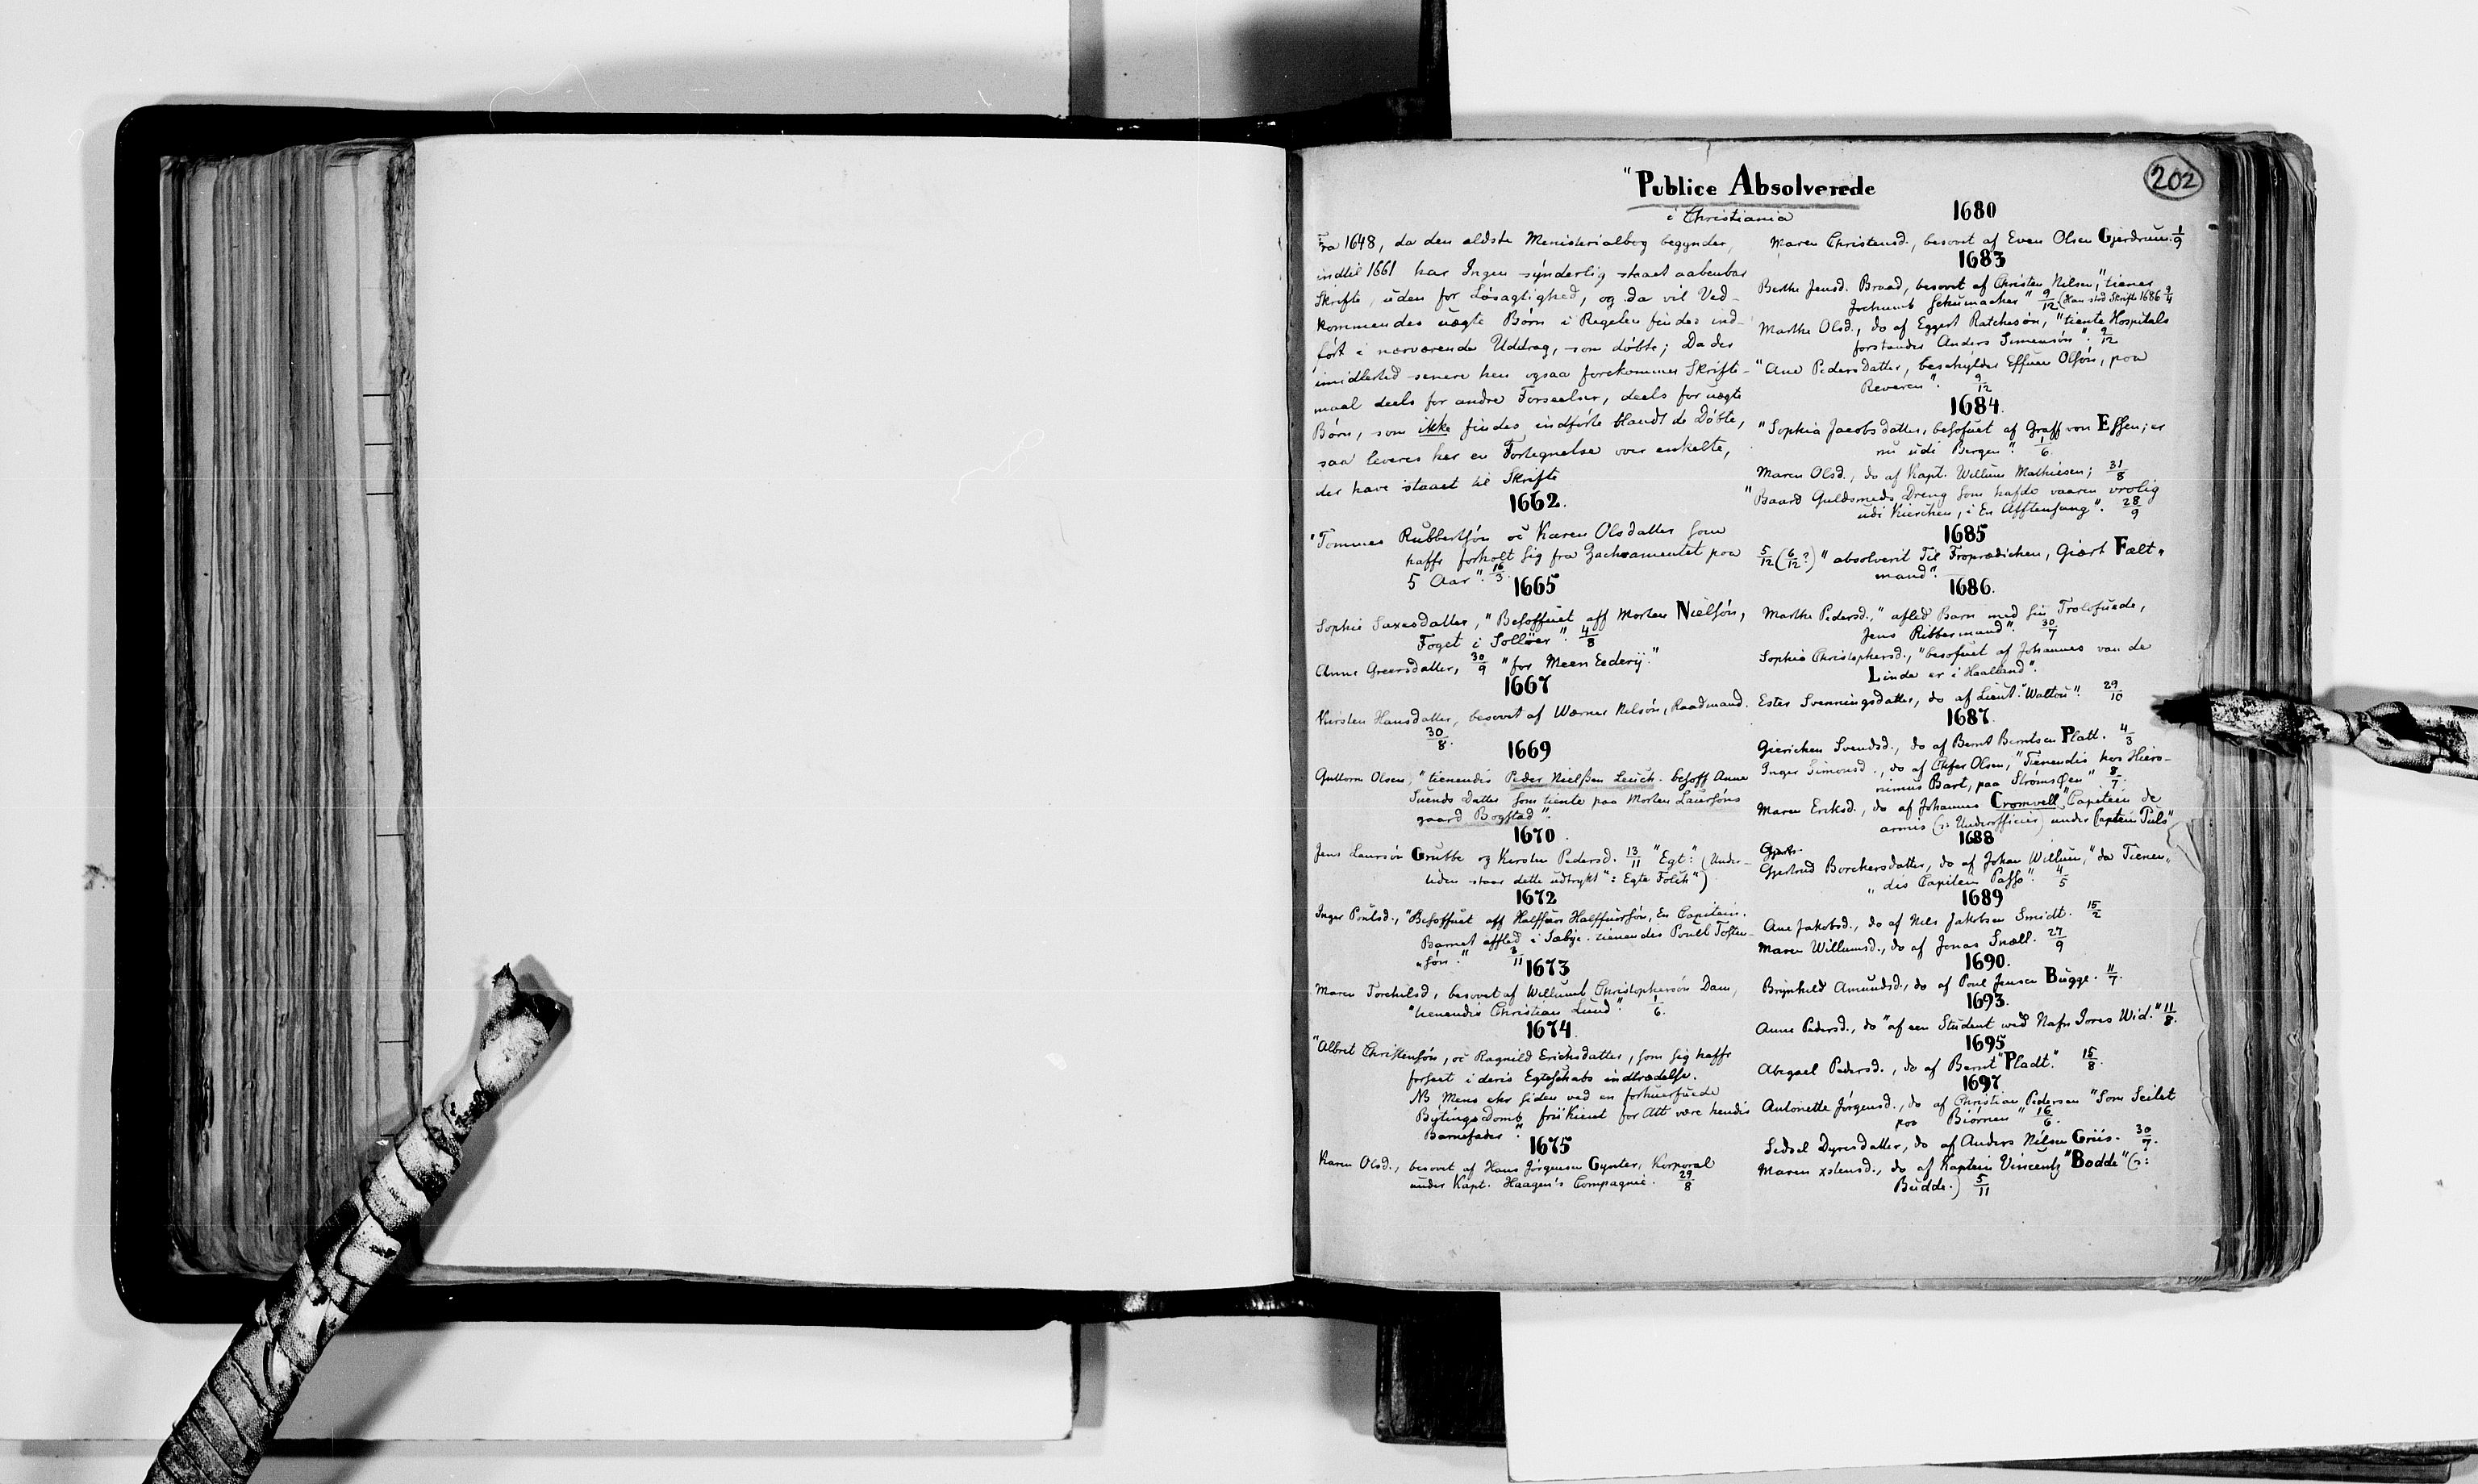 202
"Publice Absolverede
i Christiania
Fra 1648, da den ældste Ministerialbog begynder,
indtil 1661 har Ingen synderlig staaet aabenbar
Skrifte, uden for Løsagtighed, og da vil Ved-
kommendes uægte Børn i Regelen findes ind-
ført i nærværende Uddrag, som døbte; Da der
imidlertid senere hen ogsaa forekommer Skrifte-
maal deels for andre Forseelser, deels for uægte
Børn, som ikke findes indførte blandt de Døbte,
saa leveres her en Fortegnelse over enkelte,
der have staaet til Skrifte
1662.
"Tommes Rubbertsøn oc Karen Olsdatter som
haffr forholt sig fra Zachramentet paa
5 Aar". 16/3.
1665
Sophie Saxesdatter, "Besoffuet aff Morten Nielsøn,
Foget i Solløer". 4/8
Anne Greersdatter, 30/9 "for Meen Eedery."
1667
Kirsten Hansdatter, besovet af Werner Nilsøn, Raadmand.
30/8.
1669
Guttorm Olsen, "tienendis Peder Nielssen Leuch. besoff Anne
Suends Datter som tiente paa Morten Laursøns
gaard Bogstad".
1670
Jens Laursøn Grubbe og Kirsten Pedersd. 13/11 "Egt:" (Under-
tiden staar dette udtrykt": Egte Folch")
1672
Inger Poulsd., "Besoffuet aff Halffuor Halffuorsøn, En Capitain.
Barnet affled i Sæbye. tienendis Pouell Tosten-
"søn." 3/11
1673
Maren Torchilsd, besovet af Willumb Christophersøn Dam,
"tienendis Christian Lund". 1/6.
1674.
"Albret Christensøn, oc Ragnild Erichsdatter, som sig haffr
forseet i deris Egteskabs indtrædelse.
NB Mens ehr siden ved en forhuerfuede
Bytings Domb frii Kient for Att være hendis
Barnefader".
1675
Karen Olsd., besovet af Hans Jørgensen Gynter, Korporal
under Kapt. Haagen's Compagnie. 29/8
1680
Maren Christensd., besovet af Even Olsen Gjerdrum. 1/9
1683
Berthe Jensd. Braad, besovet af Christen Nilsen, "tiener
Jochumb Schumacher" 9/12 (Han stod Skrifte 1686 9/4
Marthe Olsd., do af Eggert Ratchesøn, "tiente Hospitals
forstander Anders Simensøn". 9/12
"Ane Peders Datter, beschylder Effuen Olsøn, paa
Reveren". 9/12
1684.
"Sophia Jacobs datter, besofuet af Graff von Essen; er
nu udi Bergen". 1/6.
Maren Olsd., do af Kapt. Willum Mathiesen; 31/8
"Baard Guldsmeds Dreng som hafde vaaren vrolig
udi Kierchen, i En Afftensang". 28/9
1685
5/12 (6/12?) "absolverit Til Froprædichen, Giært Fælt"
mand".
1686.
Marthe Pedersd., "afled Barn med sin Trolofuede,
Jens Ribbermand". 30/7
Sophia Christophersd., "besofuet af Johannes van de
Linde er i Haalland".
Ester Svenningsdatter, do af Lieut. "Walton". 29/10
1687.
Giericken Svendsd., do af Bernt Berntsen Platt. 4/3
Inger Simonsd., do af Olfer Olsen, "Tienendis hos Hiero-
nimus Bart, paa StrømsØen" 8/7.
Maren Eriksd., do af Johannes Cromvell, "Capitein de
armis (ɔ: Underofficier) under Captein Puls"
1688
Gjertrud Borchersdatter, do af Johan Willum, "da Tienen"
"dis Capitein Passo". 4/5
1689
Ane Jakobsd., do af Nils Jakobsen Smidt. 15/2
Maren Willumsd., do af Jonas Snæll. 27/9
1690.
Brynhild Amundsd., do af Poul Jensen Bugge. 11/7.
1693.
Anne Pedersd., do "af een Student wed Nafn Jores Wid." 11/8.
1695
Abegael Pedersd., do af Bernt "Pladt". 15/8.
1697.
Antonette Jørgensd., do af Christian Pedersen "Som Seilet
paa Biørnen" 16/6.
Sedsel Dyresdatter, do af Anders Nilsen Griis. 30/7.
Maren xstensd., do af Kaptein Vincentz "Bodde" (ɔ:
Budde.) 5/11